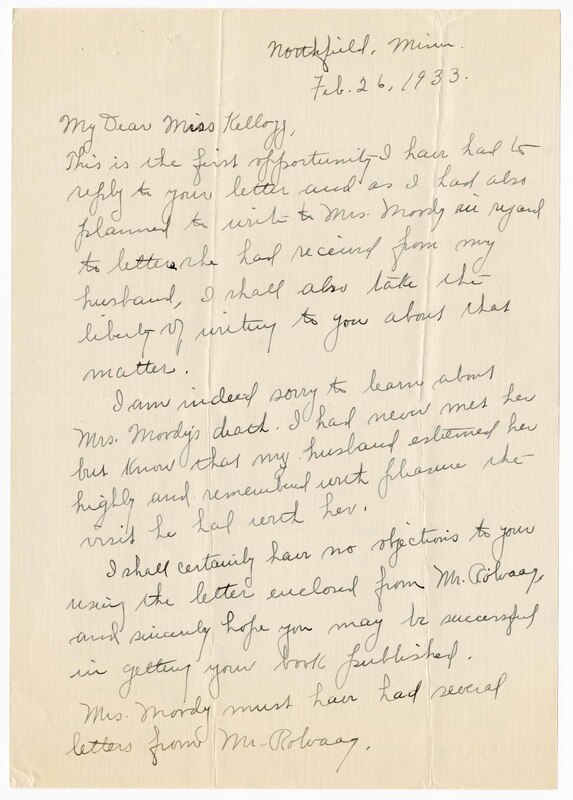 Northfield, Minn.
Feb. 26, 1933.
My Dear Miss Kellogg,
This is the first opportunity I have had to
reply to your letter and as I had also
planned to write to Mrs. Moody in regard
to letters she had received from my
husband, I shall also take the
liberty of writing to you about that
matter.
I am indeed sorry to learn about
Mrs. Moody's death. I had never met her
but know that my husband esteemed her
highly and remembered with pleasure the
visit he had with her.
I shall certainly have no objections to your
using the letter enclosed from Mr. Rölvaag,
and sincerely hope you may be successful
in getting your book published.
Mrs. Moody must have had several
letters from Mr. Rolvaag.